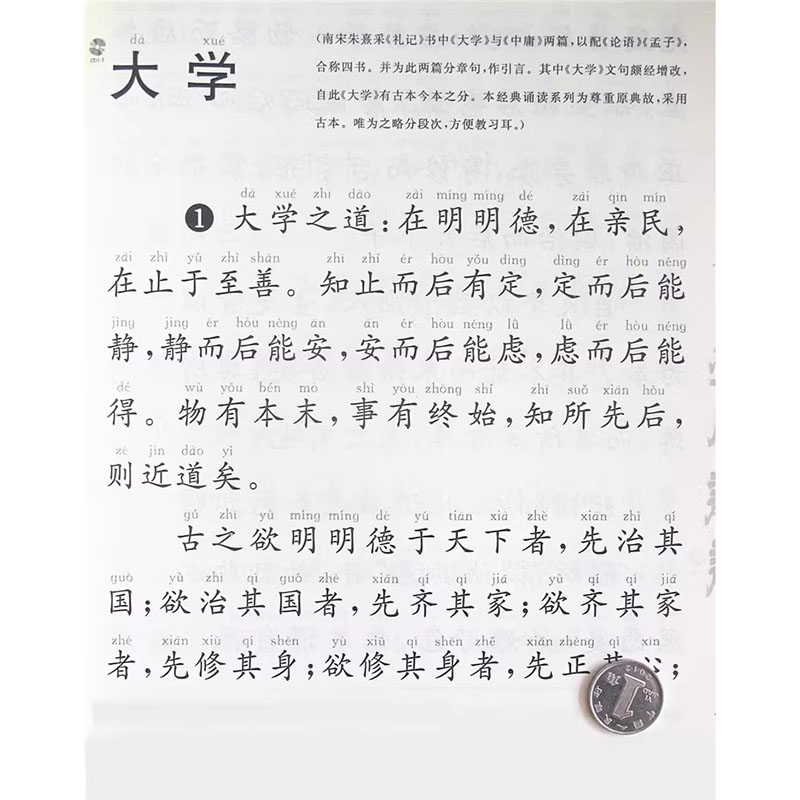 dà xué
大学
(南宋朱熹采《礼记》书中《大学》与《中庸》两篇，以配《论语》《孟子》，
合称四书。并为此两篇分章句，作引言。其中《大学》文句颇经增改，
自此《大学》有古本今本之分。本经典诵读系列为尊重原典故，采用
古本。唯为之略分段次，方便教习耳。)
dà xué zhī dào zài míng míng dé zài qīn mín
❶ 大学之道：在明明德，在亲民，
zài zhì yú zhì shàn zhī zhǐ ér hòu yǒu dìng dìng ér hòu néng
在止于至善。知止而后有定，定而后能
jìng jìng ér hòu néng ān ān ér hòu néng lǜ lǜ ér hòu néng
静，静而后能安，安而后能虑，虑而后能
dé wù yǒu běn mò shì yǒu zhōng shǐ zhī suǒ xiān hòu
得。物有本末，事有终始，知所先后，
zé jìn dào yǐ
则近道矣。
gǔ zhī yù míng míng dé yú tiān xià zhě xiān zhì qí
古之欲明明德于天下者，先治其
guó yù zhì qí guó zhě xiān qí qí jiā yù qí qí jiā
国；欲治其国者，先齐其家；欲齐其家
zhě xiān xiū qí shēn yù xiū qí shēn zhě xiān zhèng qí xīn
者，先修其身；欲修其身者，先正其心；
中国人民银行
1角
YI JIAO
2012